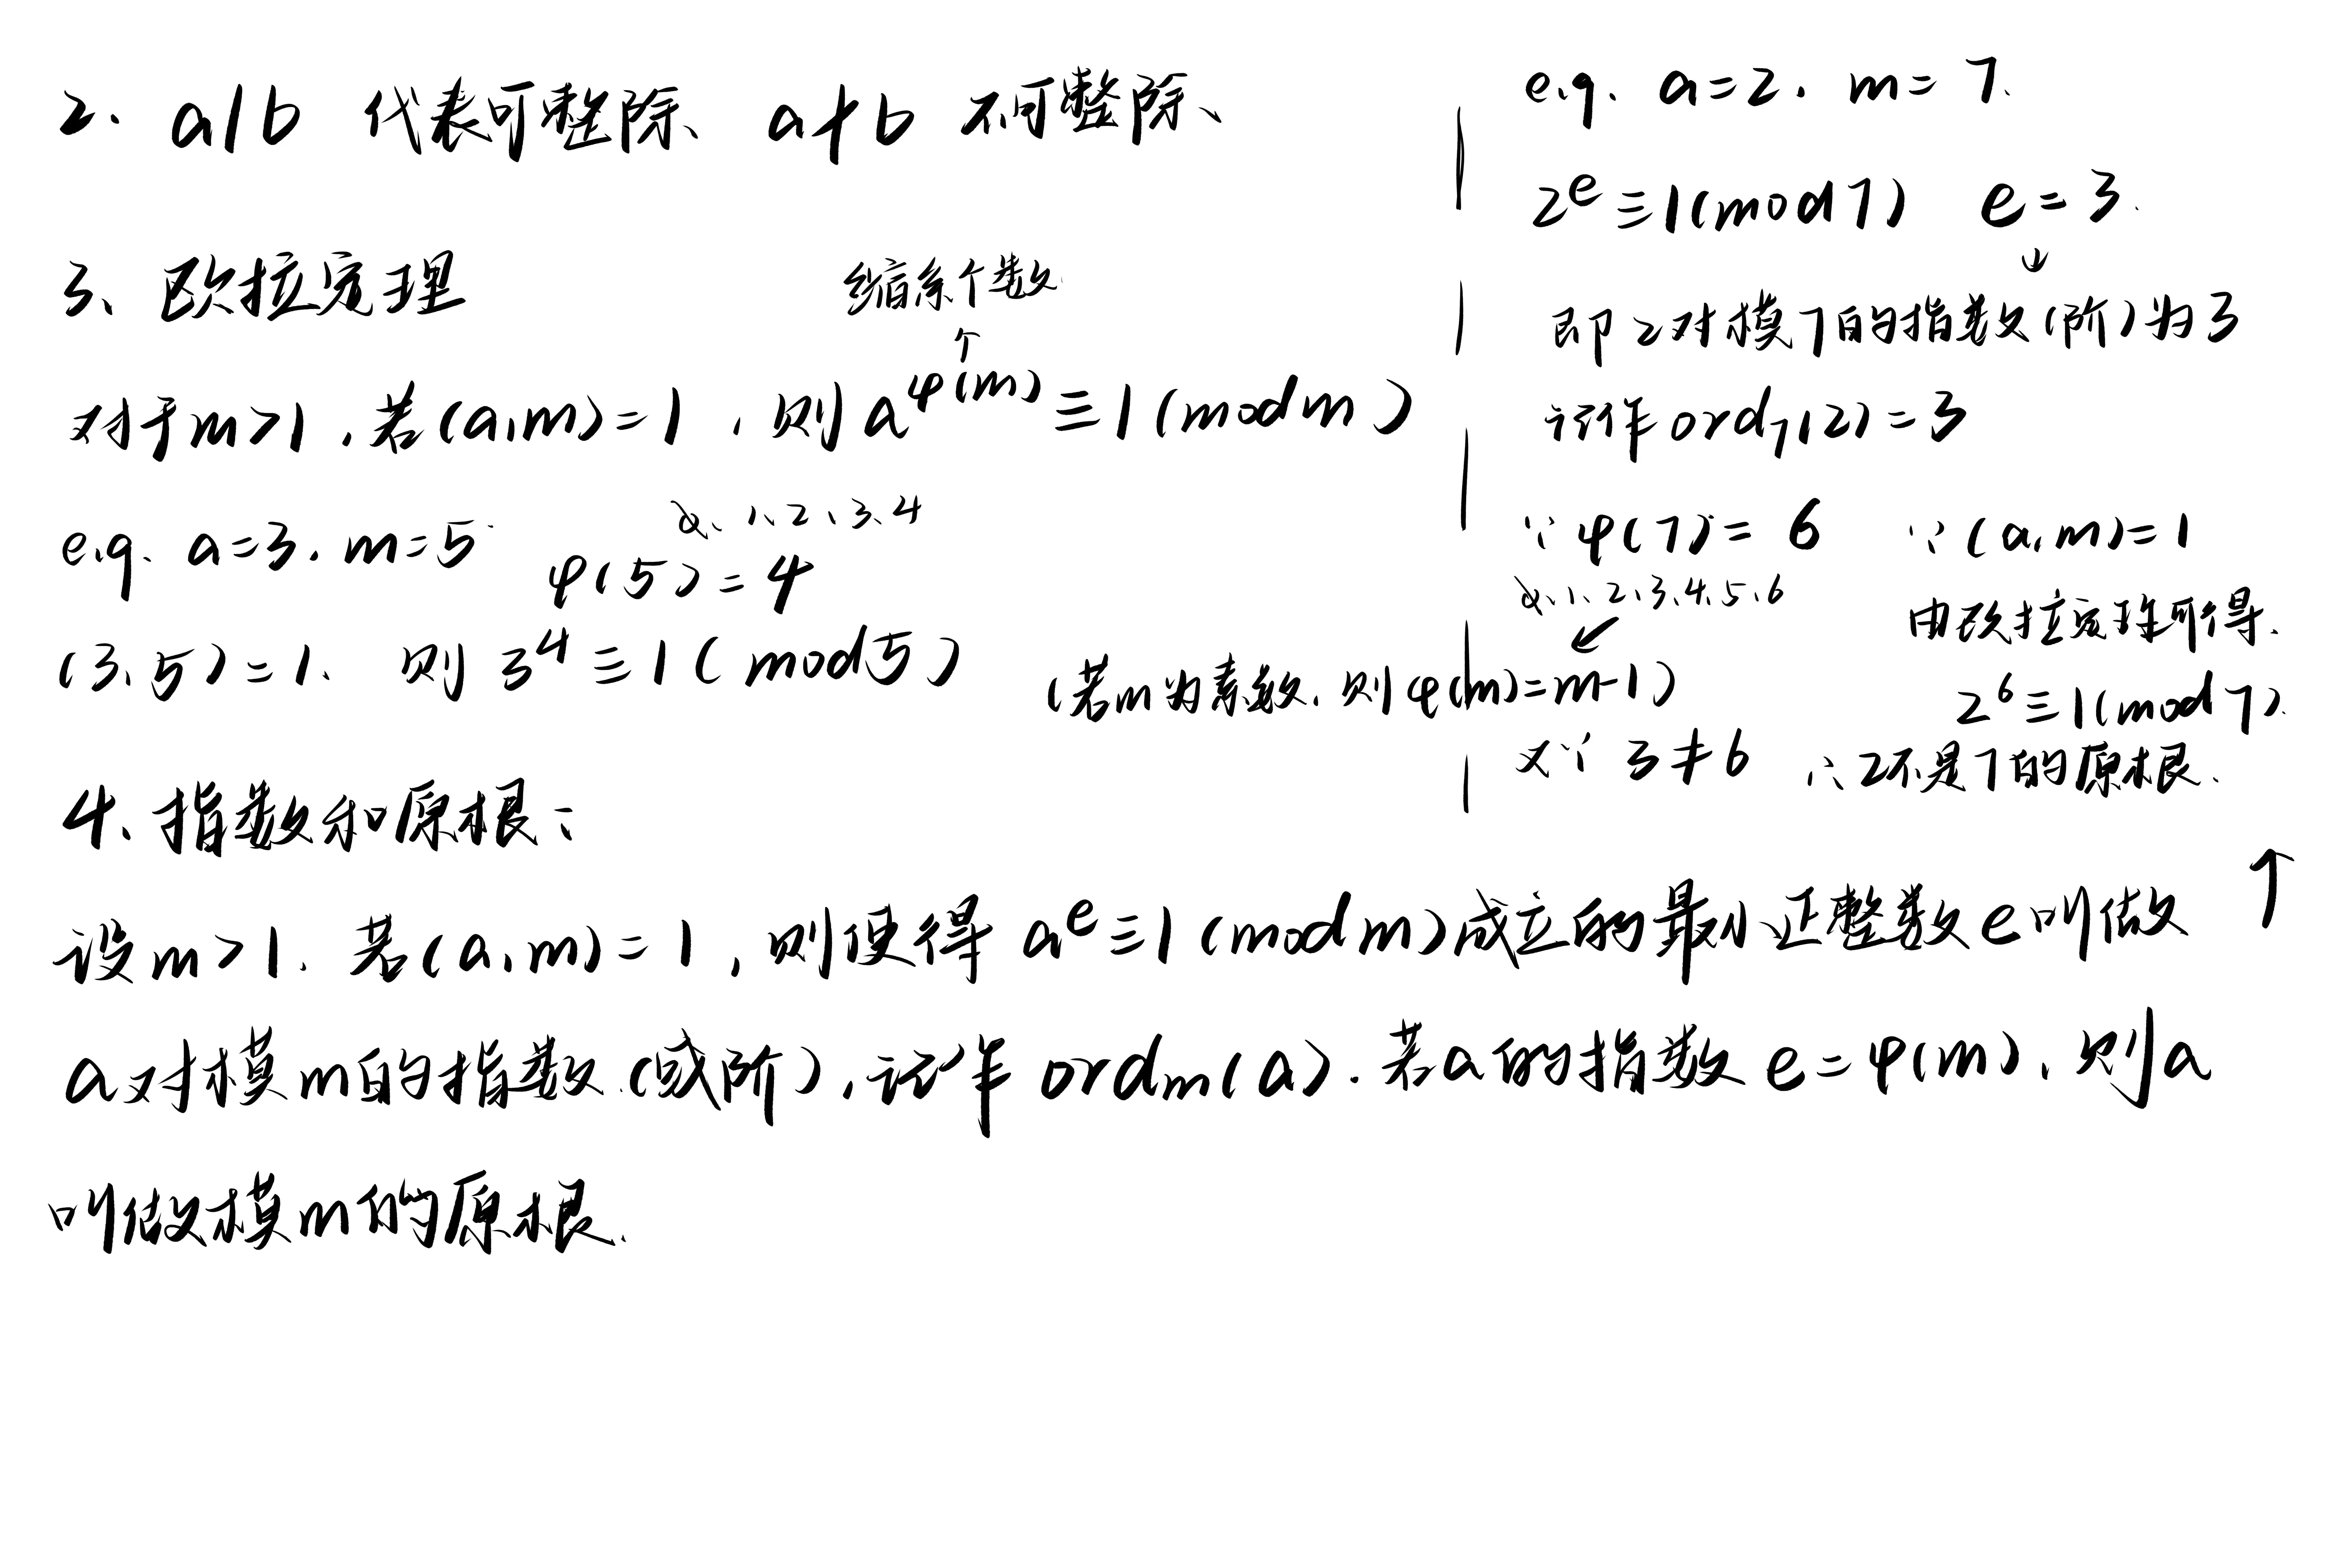 2. a|b 代表可整除、 a∤b 不可整除、
3、欧拉定理
缩系个数
↑
对于m>1,若(a,m)=1,则a^φ(m)≡1(modm)
e.g. a=3, m=5
0̸、1、2、3、4
φ(5)=4
(3,5)=1、则 3^4≡1(mod5)
(若m为素数,则φ(m)=m-1)
4、指数和原根:
设m>1,若(a,m)=1,则使得 a^e≡1(modm)成立的最小正整数e叫做
a对模m的指数(或阶),记作 ordm(a).若a的指数 e=φ(m),则a
叫做模m的原根.
e.g. a=2, m=7.
2^e≡1(mod7) e=3.
↓
即2对模7的指数(阶)为3
记作ord7(2)=3
∵φ(7)=6 ∵(a,m)=1
0̸、1、2、3、4、5、6
↙
由欧拉定理可得,
2^6≡1(mod7).
又∵3≠6 ∴2不是7的原根.
↑